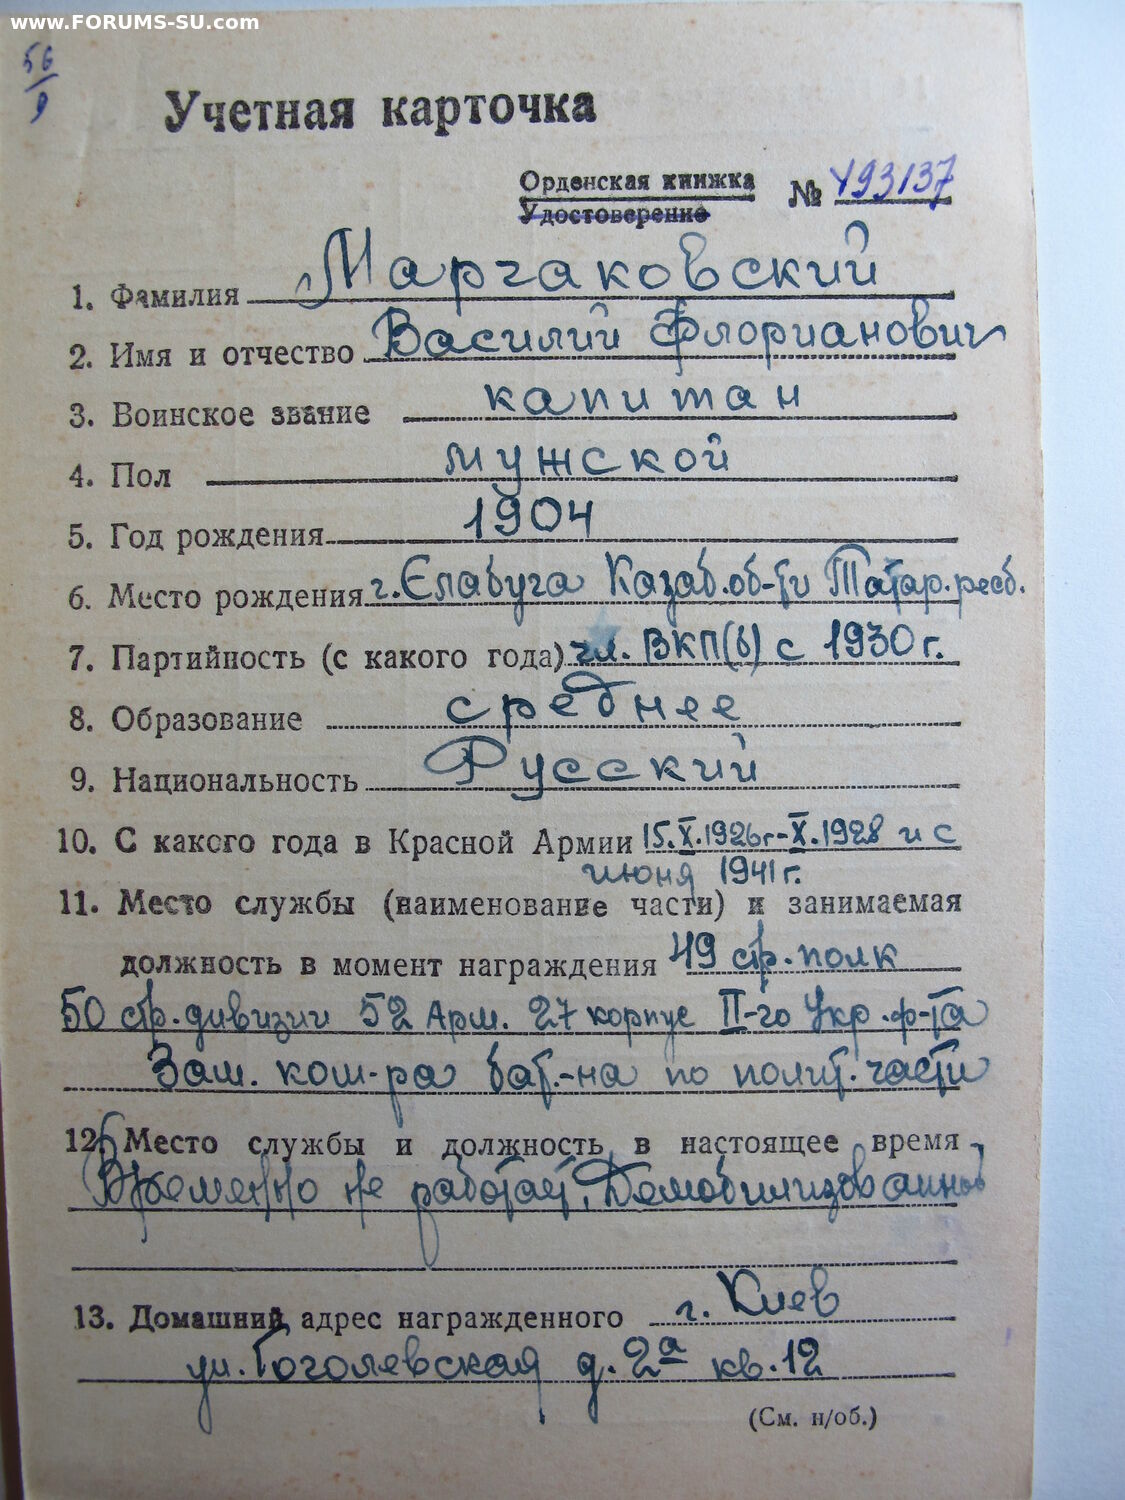 www.FORUMS-SU.com
56
9
Учетная карточка
Орденская книжка № 493137
Удостоверение
1. Фамилия Марчаковский
2. Имя и отчество Василий Флорианович
3. Воинское звание капитан
4. Пол мужской
5. Год рождения 1904
6. Место рождения г. Елабуга Казав. об-ти Татар. респ.
7. Партийность (с какого года) чл. ВКП(б) с 1930 г.
8. Образование среднее
9. Национальность Русский
10. С какого года в Красной Армии 15.X.1926г-X.1928 и с
июня 1941 г.
11. Место службы (наименование части) и занимаемая
должность в момент награждения 49 стр. полк
50 стр. дивизии 52 Арм. 27 корпус II-го Укр. ф-та
Зам. ком-ра бат.-на по полит. части
12. Место службы и должность в настоящее время
Временно не работает, Демобилизованный
13. Домашний адрес награжденного г. Киев
ул. Гоголевская д. 2а кв. 12
(См. н/об.)